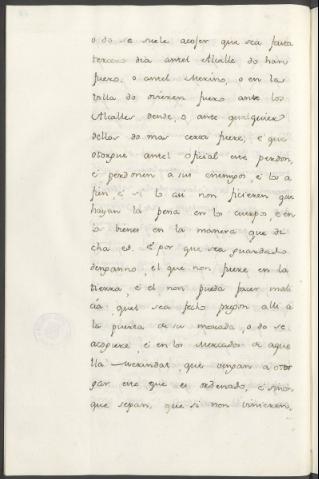 o do se suele acojer que sea fasta
tercero dia antel Alcalle do han
fuero, o antel Merino, o en la
villa do ovieren fuero ante los
Alcalles dende, o, ante qualquier
dellos do mas cerca fuere; e que
otorgue antel oficial este perdon,
e perdonen a sus enemigos, e los a
fien, e si lo asi non ficieren que
hayan la pena en los cuerpos, e en
los bienes en la manera que di
cha es. E por que sea guardado
denganno, el que non fuere en la
tierra, e el non pueda facer mali
cia quel sea fecho pregon alli a
la puerta de su morada, o do se
acogiere, e en los Mercados de aque
lla Merindat, que vengan a otor
gar esto que es ordenado, e sinon
que sepan, que si non vinieren,